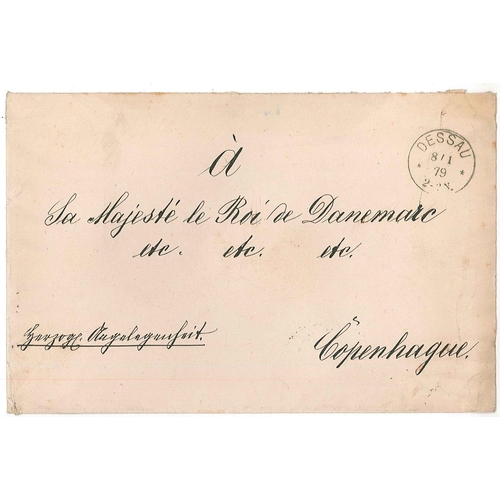 à
DESSAU
8/1
79
2-3N.
Sa Majesté le Roi de Danemarc
etc. etc. etc.
Herzogl. Angelegenheit.
Copenhague.